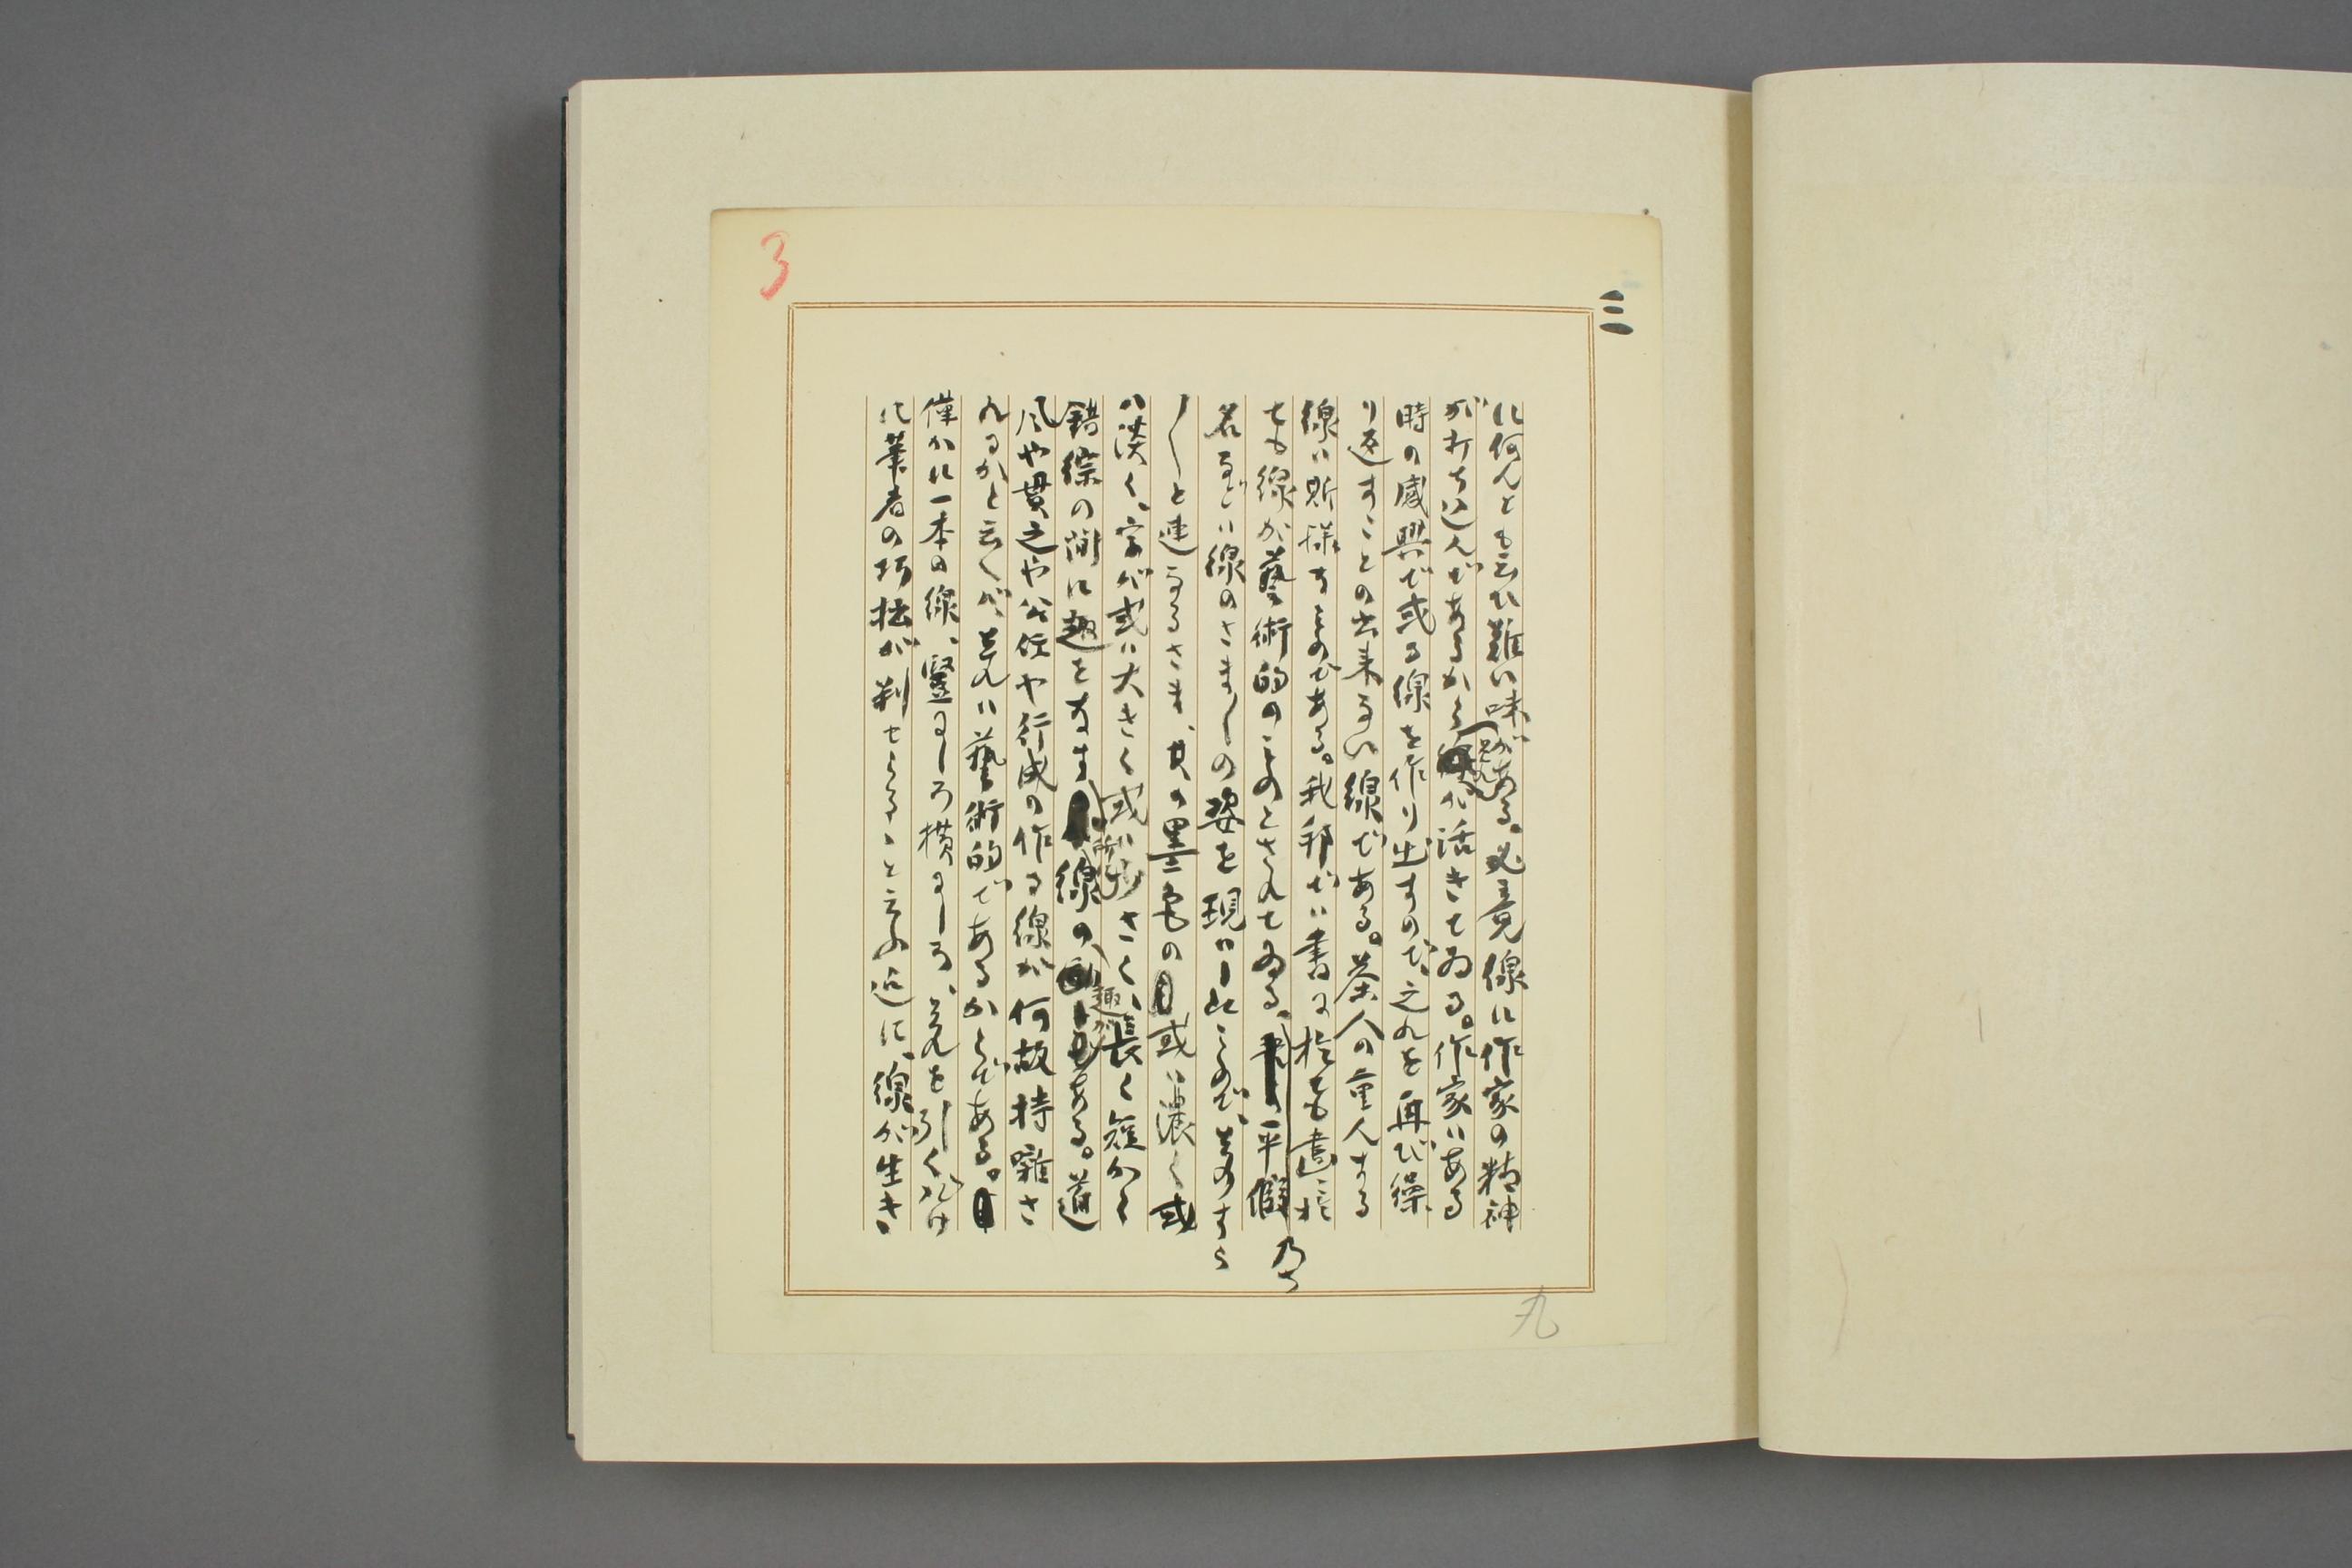 三
3
に何んとも云ひ難い味がある。必竟線に作家の精神
が打ち込んであるから、それが活きてゐる。作家はある
時の感興で或る線を作り出すのだ、之れを再び繰
り返すことの出来ない線である。茶人の重んずる
線は斯様すものである。我邦では書に於ても畫に於
ても線が藝術的のものとされてゐる。平假
乃ち
名など線のさま〴〵の姿を現はしたものだ、其のすら
〳〵と連なるさま、其の墨色の或は濃く或
は淡く、字が或は大きく或は小さく、長く短かく
錯綜の間に趣をなす所に線の趣がある。道
風や貫之や公任や行成の作る線が何故持囃さ
れるかと云へば、それは藝術的であるからである。
僅かに一本の線、豎にしろ横にしろ、それを引くだけ
に筆者の巧拙が判せらるゝと云ふ迄に、線が生き
九